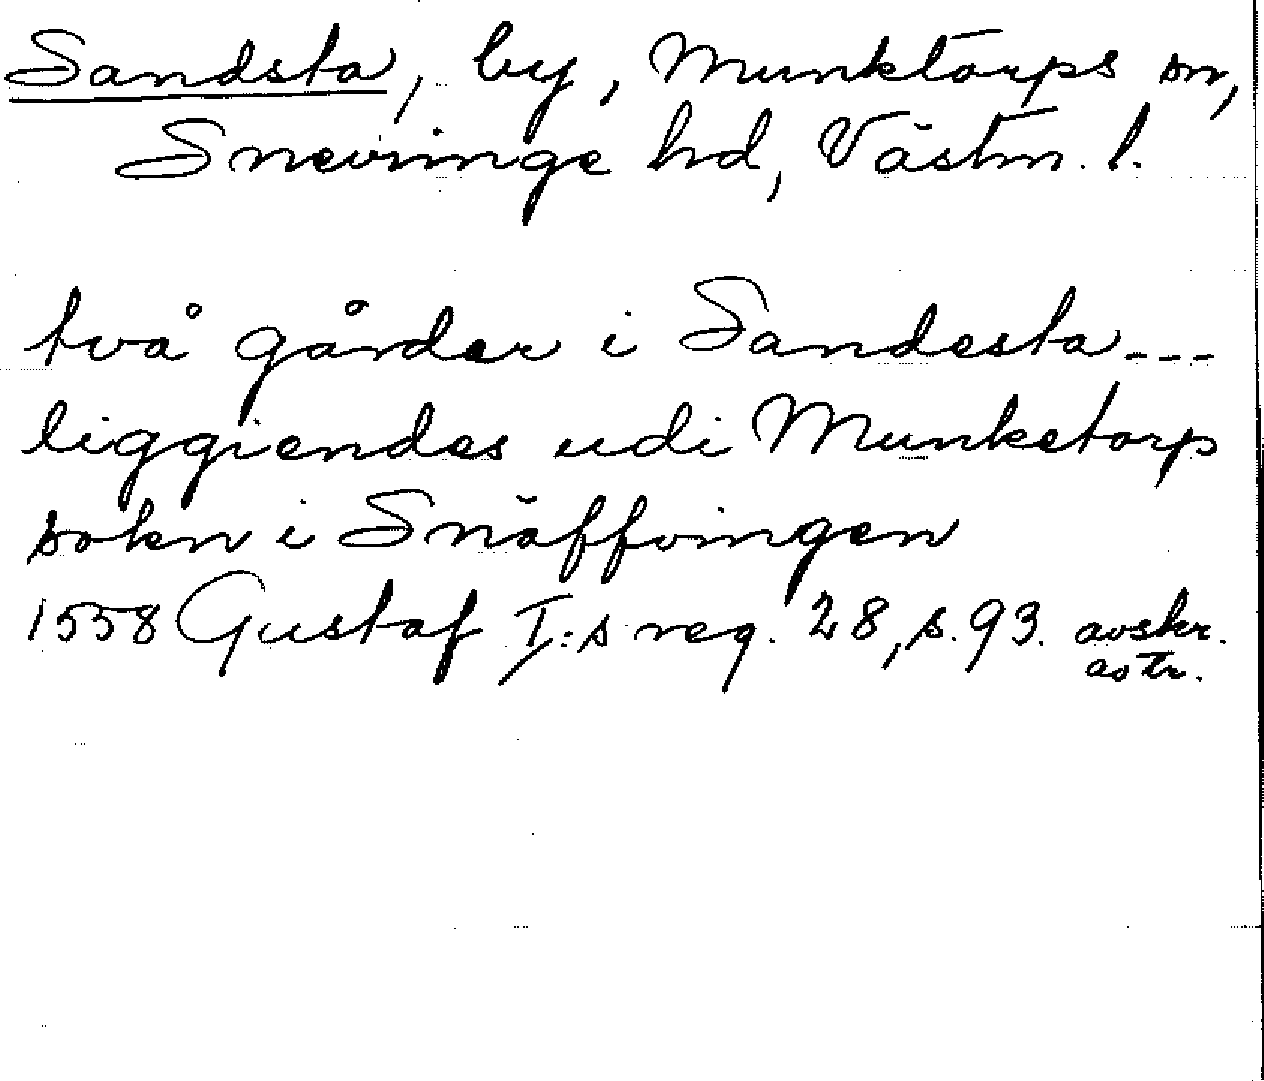 Sandsta, by, Munktorps sn,
Snevringe hd, Västm. l.
två gårder i Sandesta---
liggiendes udi Munketorp
sokn i Snäffvingen
1558 Gustaf I:s reg. 28, s. 93. avskr.